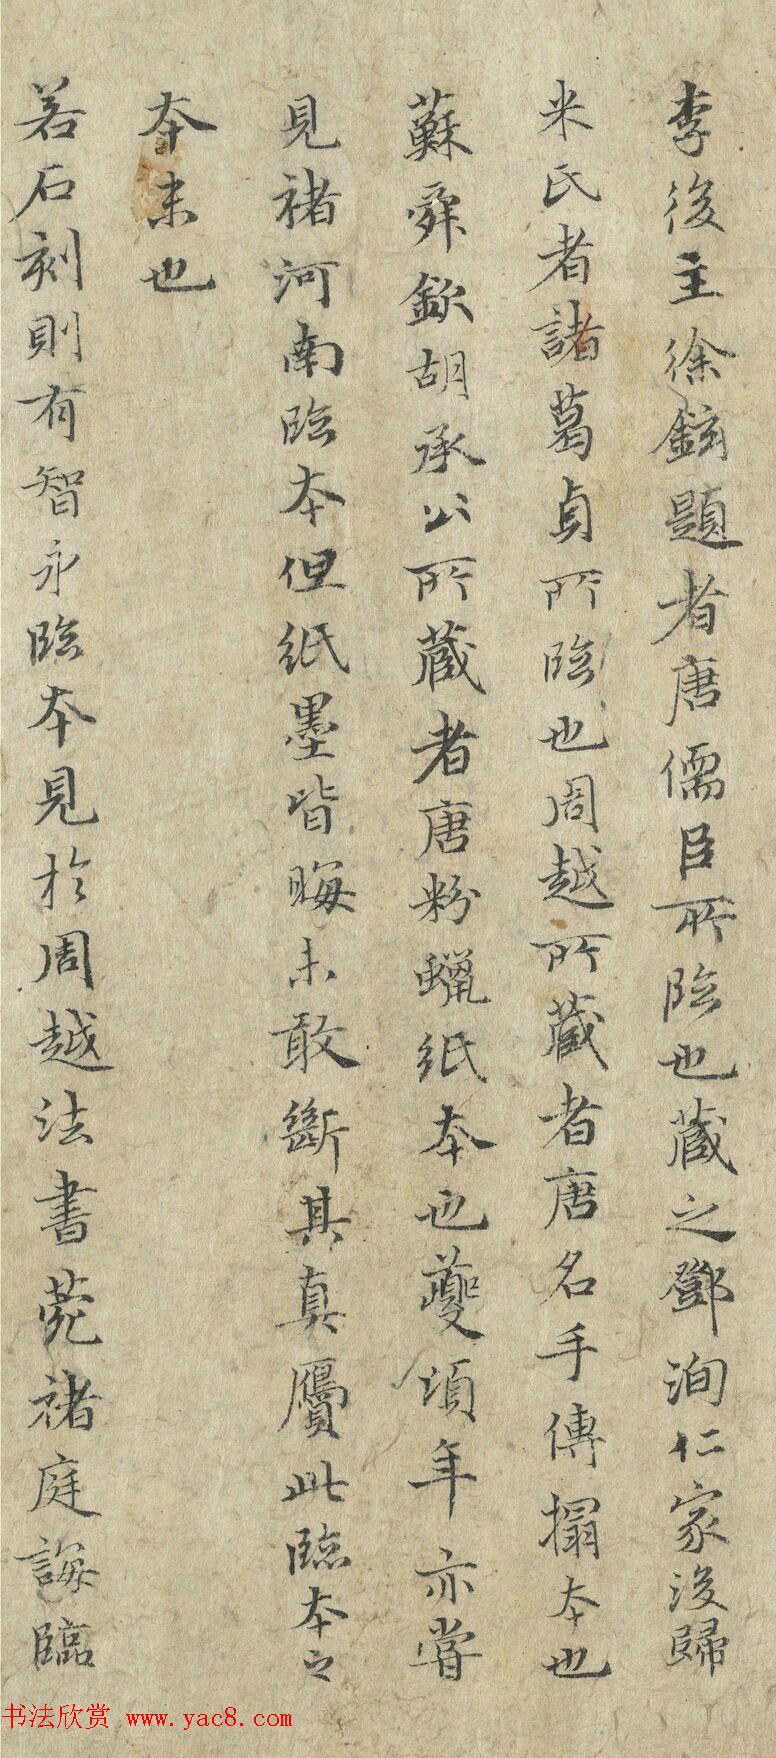 李後主徐鉉題者唐儒臣所臨也藏之鄧洵仁家後歸
米氏者諸葛貞所臨也周越所藏者唐名手傳搨本也
蘇舜欽胡承公所藏者唐粉蠟紙本也夔頃年亦嘗
見褚河南臨本但紙墨皆晦未敢斷其真贋此臨本之
本末也
若石刻則有智永臨本見於周越法書苑褚庭誨臨
书法欣赏 www.yac8.com